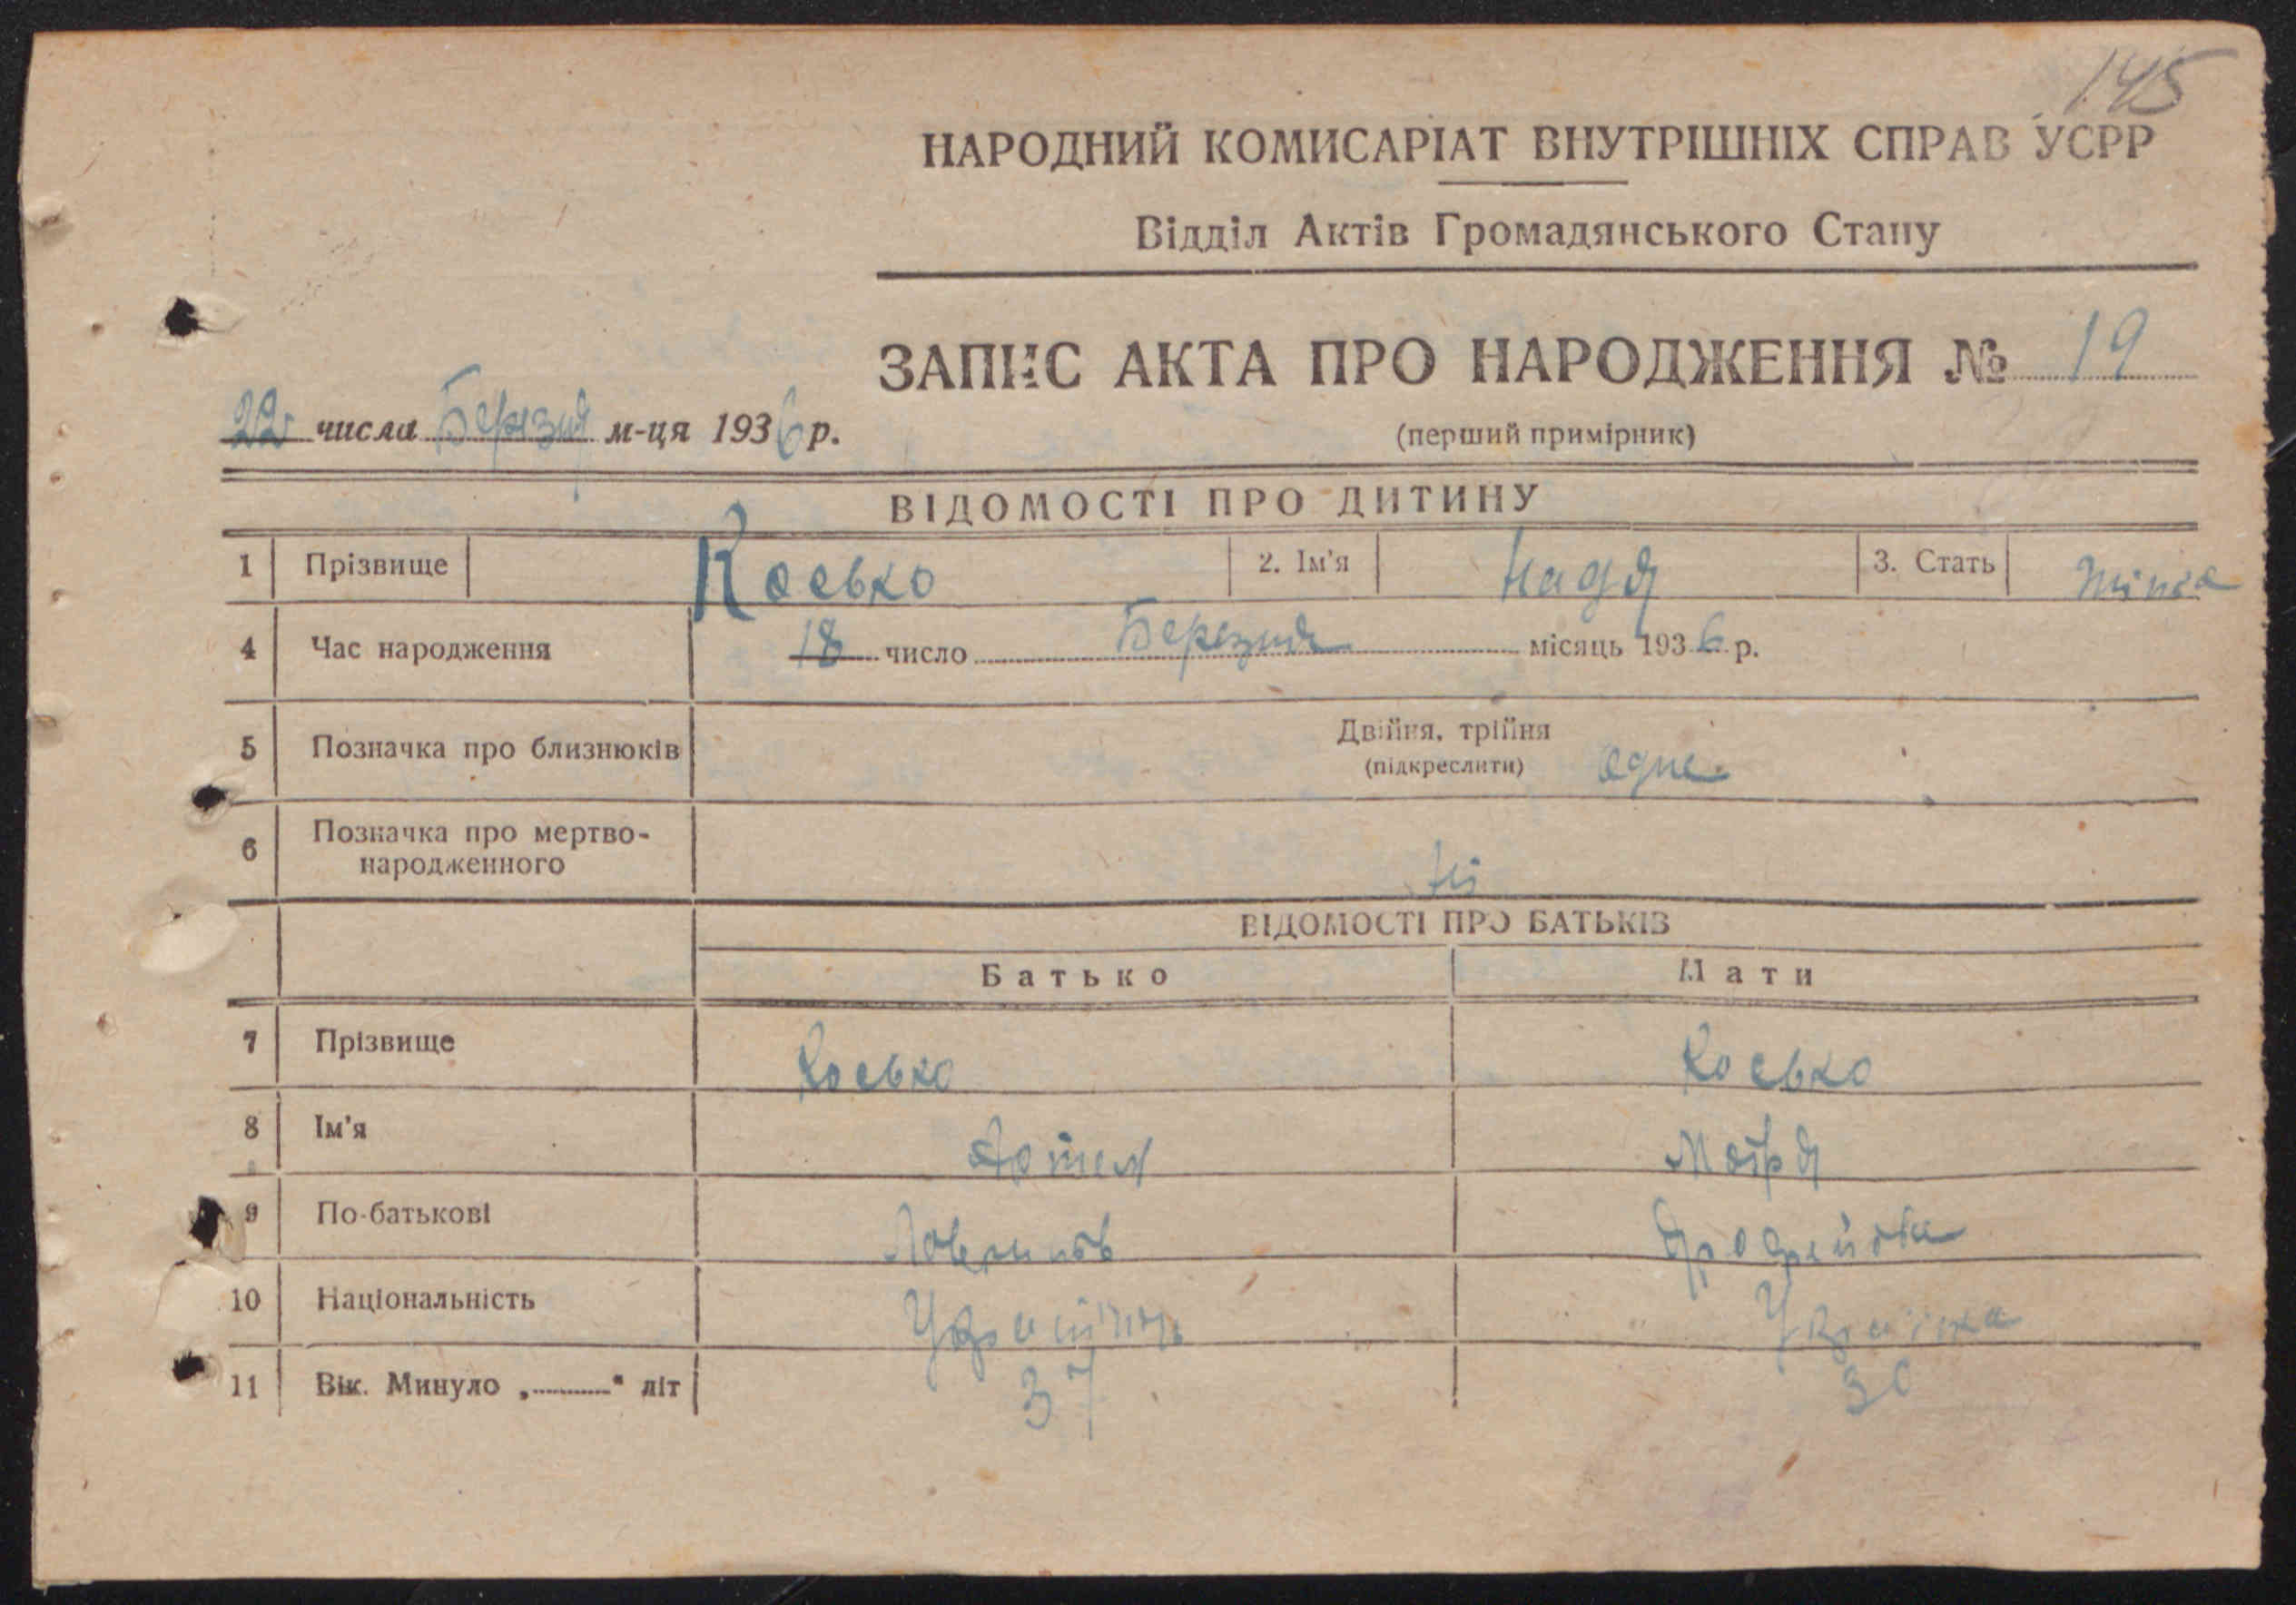 145
НАРОДНИЙ КОМИСАРІАТ ВНУТРІШНІХ СПРАВ УСРР
Відділ Актів Громадянського Стану
ЗАПИС АКТА ПРО НАРОДЖЕННЯ № 19
22 числа Березня м-ця 1936 р.
(перший примірник)
ВІДОМОСТІ ПРО ДИТИНУ
1 Прізвище Косько 2. Ім'я Надя 3. Стать жінка
4 Час народження 18 число Березня місяць 1936 р.
5 Позначка про близнюків Двійня, трійня
(підкреслити) одне
6 Позначка про мертво-
народженного ні
ВІДОМОСТІ ПРО БАТЬКІВ
Батько Мати
7 Прізвище Косько Косько
8 Ім'я Артем
9 По-батькові
10 Національність Українець Українка
11 Вік. Минуло „ " літ 37 30